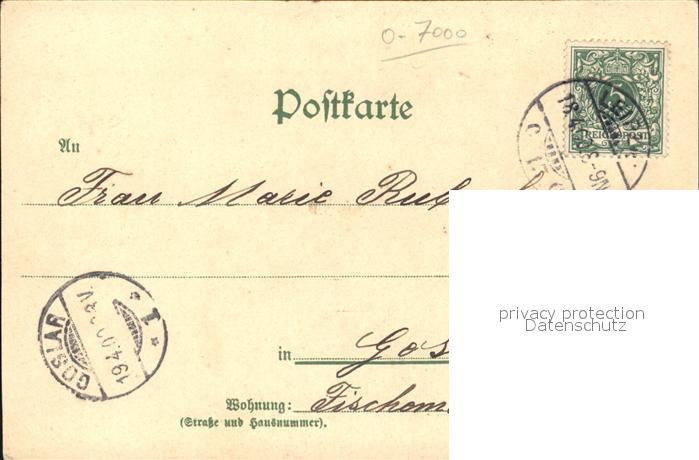 0-7000
Postkarte
REICHSPOST
An
Frau Marie
privacy protection
Datenschutz
GOSLAR
19.4.00
* 1 *
in Gos
Wohnung: Fischem
(Straße und Hausnummer).